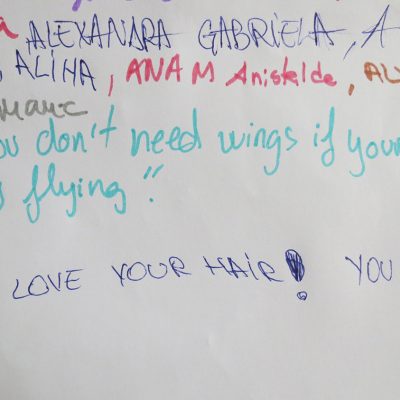 a ALEXANDRA GABRIELA, A
, ALINA, ANA M Aniselde, AL
ou don't need wings if your
flying".
LOVE YOUR HAIR! YOU